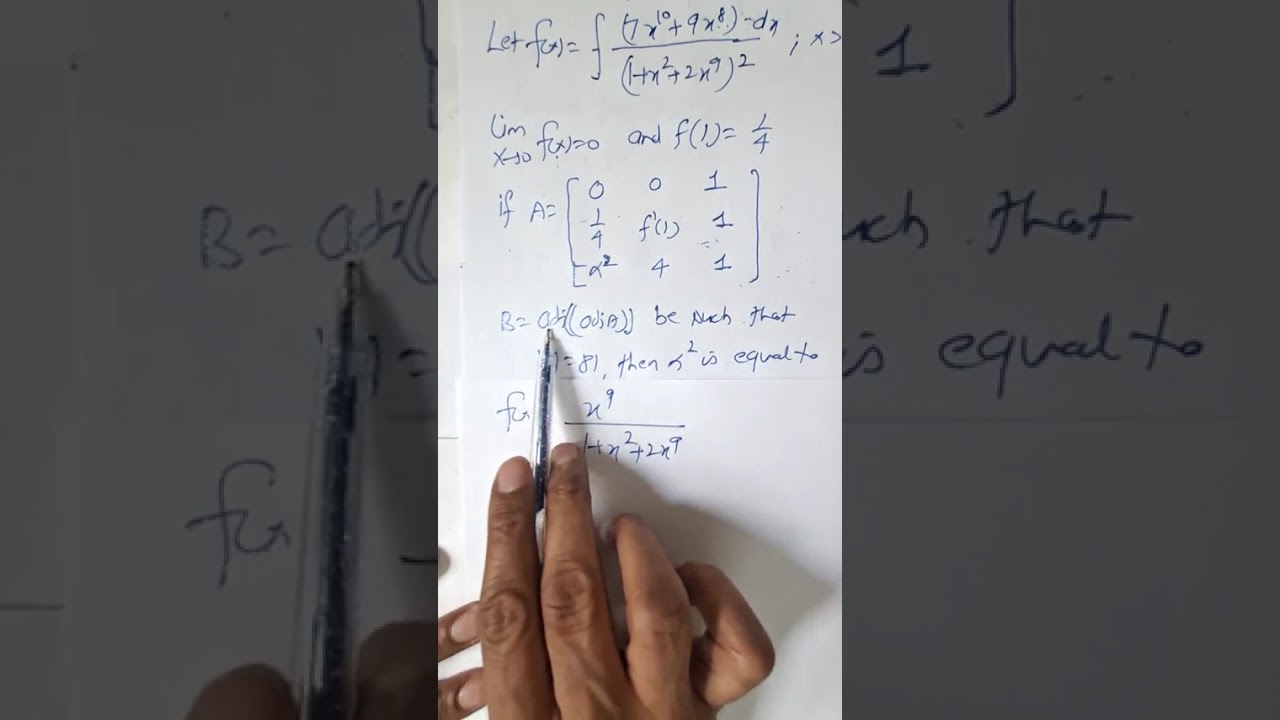 Let f(x) = ∫ (7x¹⁰ + 9x⁸) · dx / (1+x²+2x⁹)² ; x>
lim x→0 f(x)=0 and f(1) = 1/4
if A = [ 0 0 1
1/4 f'(1) 1
α² 4 1 ]
B = adj((adjA)) be such that
=81, then α² is equal to
f(x x⁹ / 1+x²+2x⁹